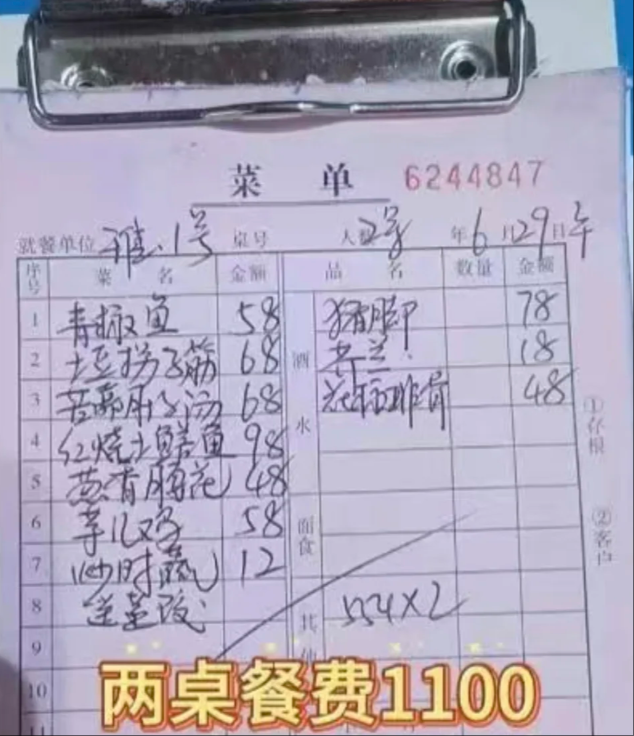 菜 单 6244847
就餐单位 雅.1号 桌号 人数 2号 年 6 月 29 日 午
序号 菜 名 金额 品 名 数量 金额
1 青椒鱼 58 酒水 猪脚 78
2 筋 68 18
3 汤 68 排骨 48
4 红烧土鳝鱼 98
5 葱香脑花 48
6 芋儿鸡 58 面食
7 炒时蔬 12
8 送 其他 554×2
9
10
11
①存根
②客户
两桌餐费1100